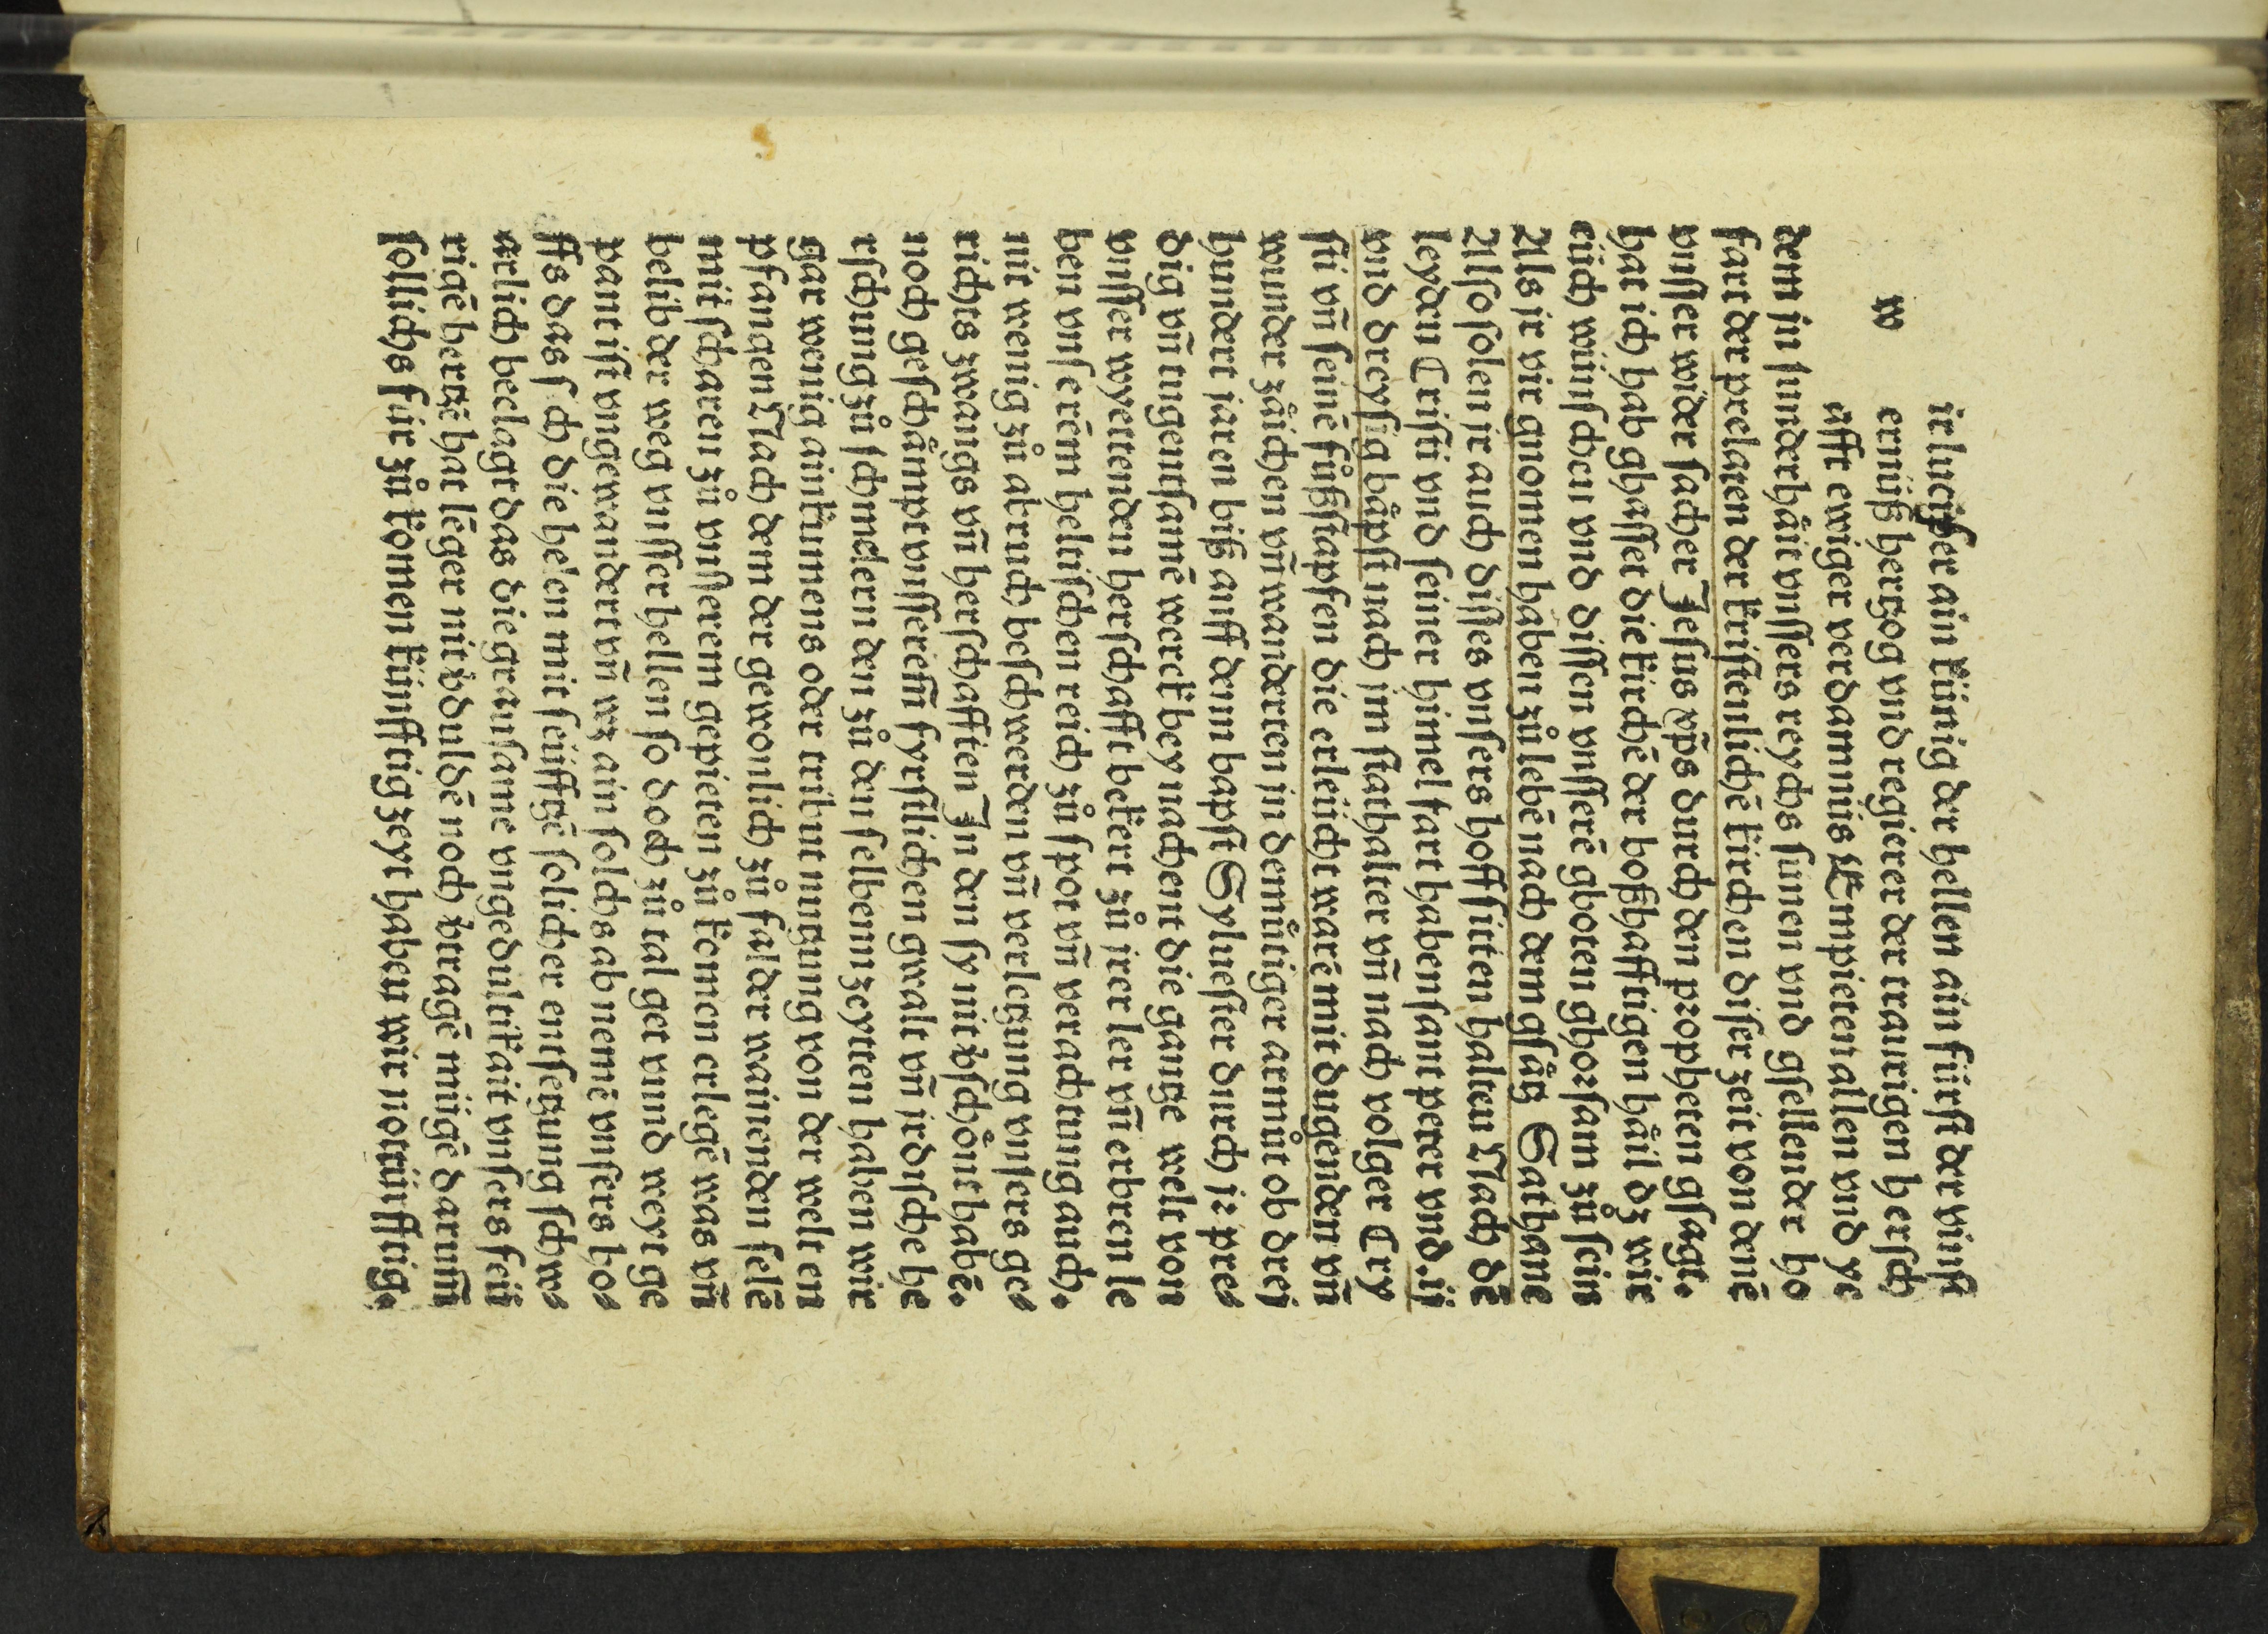 w irlucifer ain künig der hellen ain fürst der vinst
ernüß hertzog vnd regierer der traurigen hersch
afft ewiger verdamnüs Empieten allen vnd ye
dem in sunderhait vnsſers reychs sunen vnd gsellen der ho
fart der prelaten der kristenlichē kirchen diser zeit von denē
vnsſer wider sacher Jesus xp̄s durch den propheten gsagt.
hat ich hab ghasſet die kirchē der boßhafftigen häil dz wir
eüch wünschen vnd disſen vnsſerē gboten ghorsam zů sein
Als ir vir gnomen haben zů lebē nach dem gsätz Sathane
Also solen ir auch disſes vnsers hoff sitten halten Nach dē
leyden Cristi vnd seiner himel fart haben sant peter vnd .ij
vnd dreysig bäpst nach im stathalter vn̄ nach volger Cry
sti vn̄ seinē fůßstapfen die erleücht warē mit dugenden vn̄
wunder zäichen vn̄ wanderten in demütiger armůt ob drej
hundert jaren biß auff denn bapst Syluester durch ir pre⸗
dig vn̄ tugentsamē werck bey nachent die gantze welt von
vnsſer wyettenden herschafft bekert zů irer ler vn̄ erbren le
ben vnserēm hellischen reich zů spot vn̄ verachtung auch.
nit wenig zů abruch beschwerden vn̄ verletzung vnsers ge⸗
richts zwangs vn̄ herschafften In den sy nit vͤschönt habē.
noch geschämpt vnsſerem̄ fyrstlichen gwalt vn̄ irdische he
rschung zů schmelern den zů den selbenn zeytten haben wir
gar wenig ainkumens oder tribut nutzung von der welt en
pfangen Nach dem der gewonlich zů fal der wainenden selē
mit scharen zů vnsſerem gepieten zů komen erlegē was vn̄
belib der weg vnsſer hellen so doch zů tal get vnnd weyt ge
pant ist vngewandert vn̄ wz ain solchs ab nemē vnsers ho⸗
ffs das sich die hellen mit seüfftzē solicher entsetzung schw⸗
ärlich beclagt das die grausame vngedultikait vnsers feü
rigē hertzē hat lēger nit dͮuldē noch vͤtragē mügē darum̄
sollichs für zů komen künfftig zeyt haben wir notrüfftig.